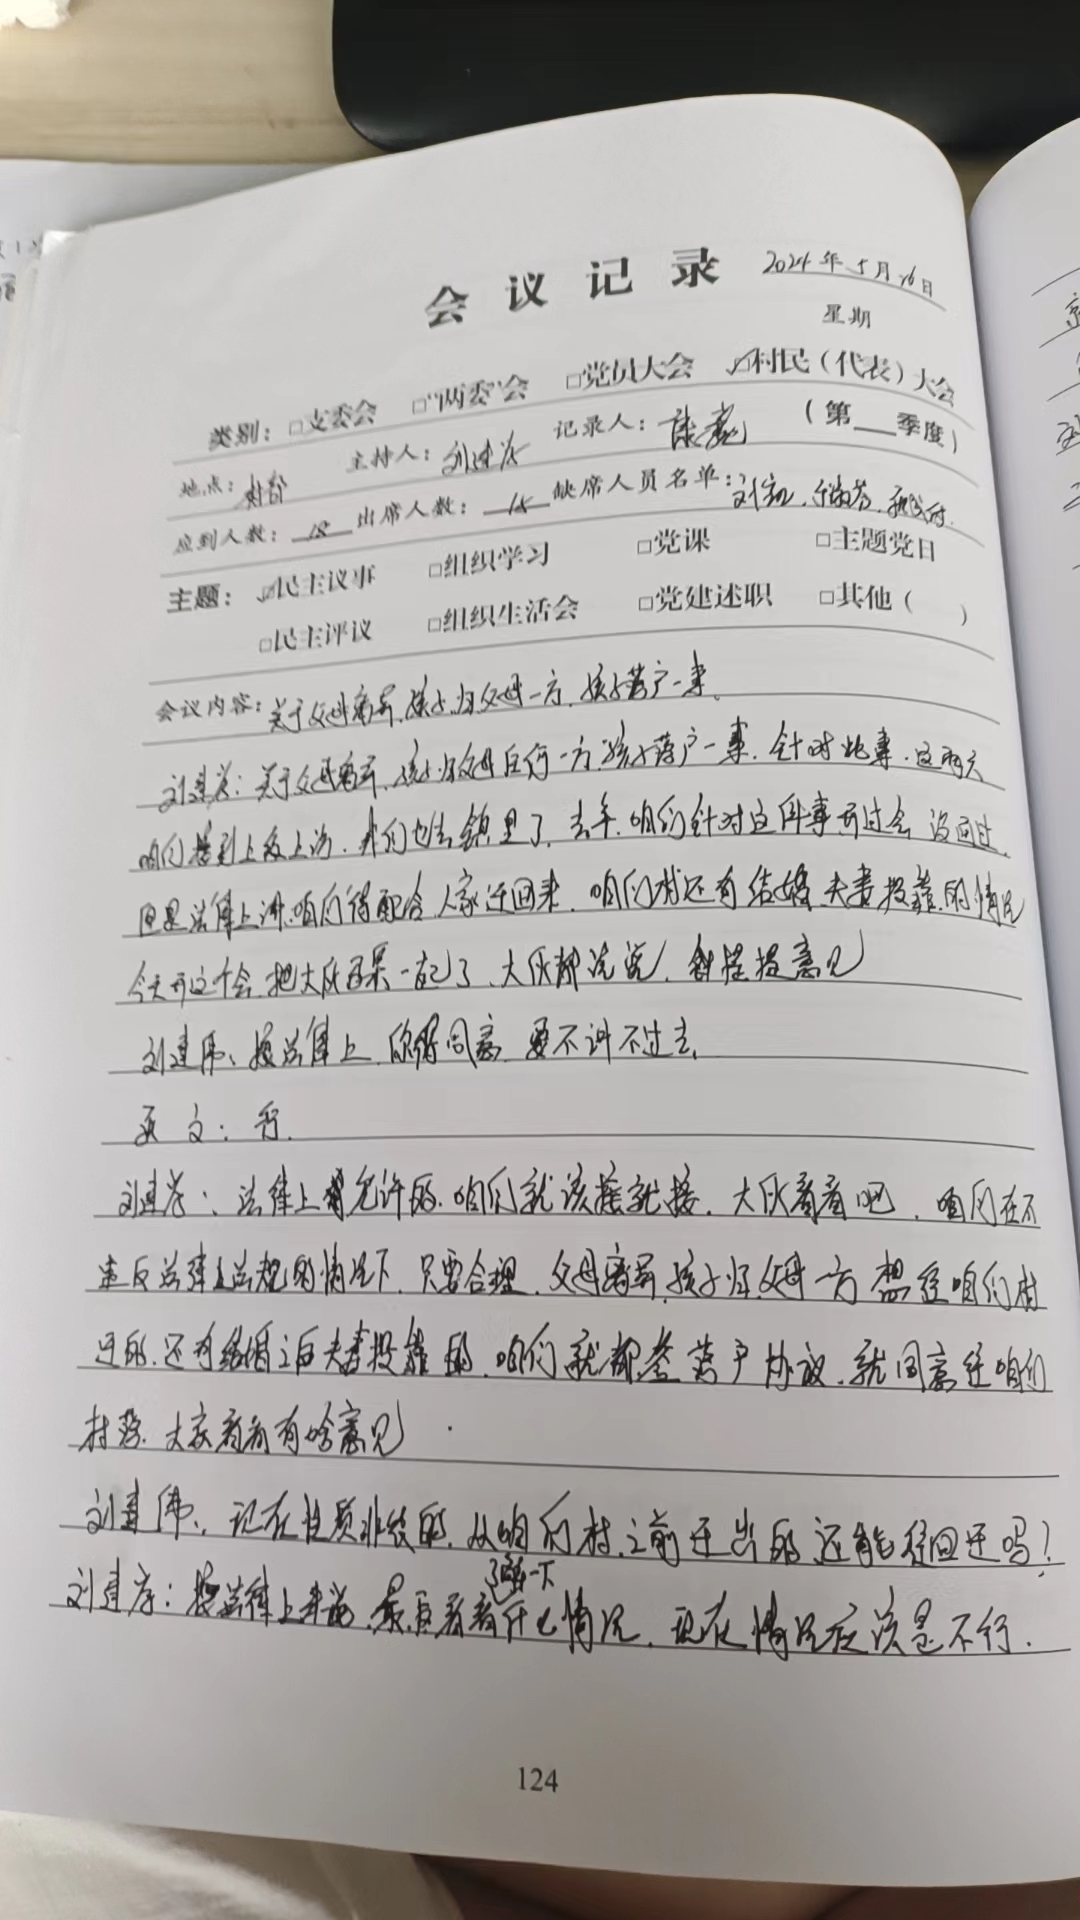 会议记录 2024年5月16日
星期
类别：□支委会 □“两委”会 □党员大会 ☑村民（代表）大会
地点：村部 主持人：刘建 记录人： （第 季度）
应到人数：18 出席人数：15 缺席人员名单：刘
主题：☑民主议事 □组织学习 □党课 □主题党日
□民主评议 □组织生活会 □党建述职 □其他（ ）
会议内容：关于父母离异，孩子归父母一方，孩子落户一事。
刘建：关于父母离异，孩子归父母任何一方，孩子落户一事，针对此事，这两天
咱们接到上级，我们也去镇里了，去年，咱们针对这件事开过会，没通过，
但是法律上讲，咱们得配合人家迁回来，咱们村还有结婚夫妻投靠的情况
今天开这个会，把大伙召集一起了，大伙都说说，都提提意见
刘建伟：按法律上，你得同意，要不讲不过去，
文：行.
刘建：法律上允许的，咱们就该接就接，大伙看看吧，咱们在不
违反法律上法规的情况下，只要合理，父母离异，孩子归父母一方想往咱们村
迁的，还有结婚之后夫妻投靠的，咱们就都签落户协议，就同意往咱们
村落，大家看看有啥意见
刘建伟：现在性质非农的，从咱们村之前迁出的还能往回迁吗？
刘建：按法律上来说，最后看看了解一下什么情况，现在情况应该是不行.
124